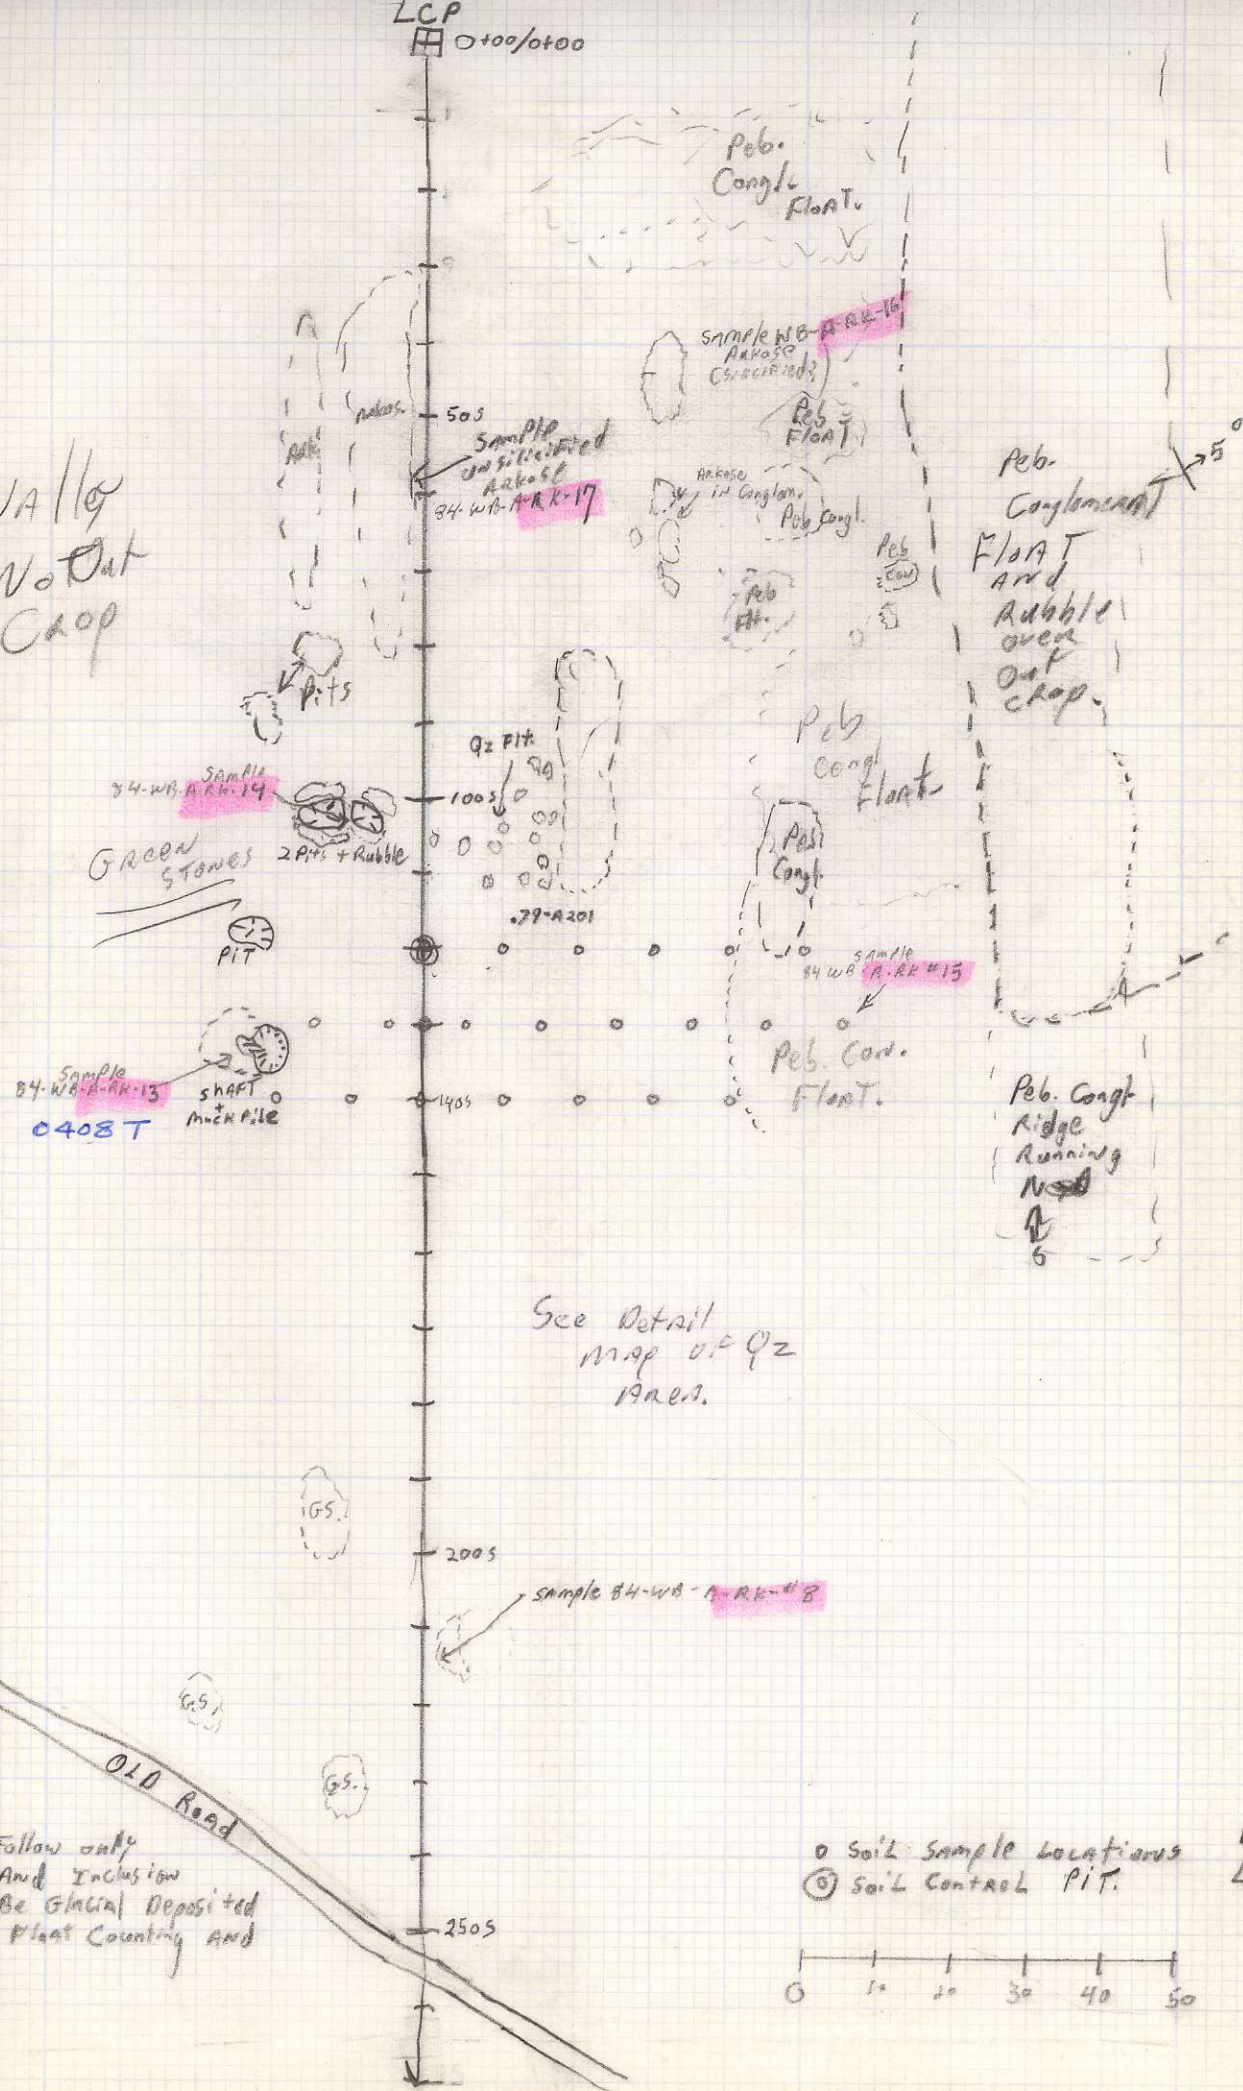 LCP
0+00/0+00
Peb.
Congl.
Float.
Sample WB-A-RK-16
Arkose
Peb
Float
50S
Sample
unsilicified
Arkose
84-WB-A-RK-17
Ark
Arkos.
Valley
No Out
Crop
Arkose
in Conglom.
Peb Congl.
Peb
Con
Peb
Flt.
Peb.
Conglomerat
Float
And
Rubble
over
Out
crop.
5°
Pits
Qz Flt.
Peb
Congl
Float
Sample
84-WB-A-RK-14
100S
2 Pits + Rubble
Green
Stones
Peb
Congl.
.79-A201
Pit
Sample
84 WB A-RK #15
Peb. Con.
Float.
Sample
84-WB-A-RK-13
0408 T
Shaft
+
Muck Pile
140S
Peb. Congl
Ridge
Running
N
S
See Detail
Map of Qz
Area.
GS.
200S
Sample 84-WB-A-RK-#8
GS.
GS.
Old Road
Follow only
And Inclusion
Be Glacial Deposited
Float Counting And
250S
o Soil Sample Locations
Soil Control Pit.
0 10 20 30 40 50